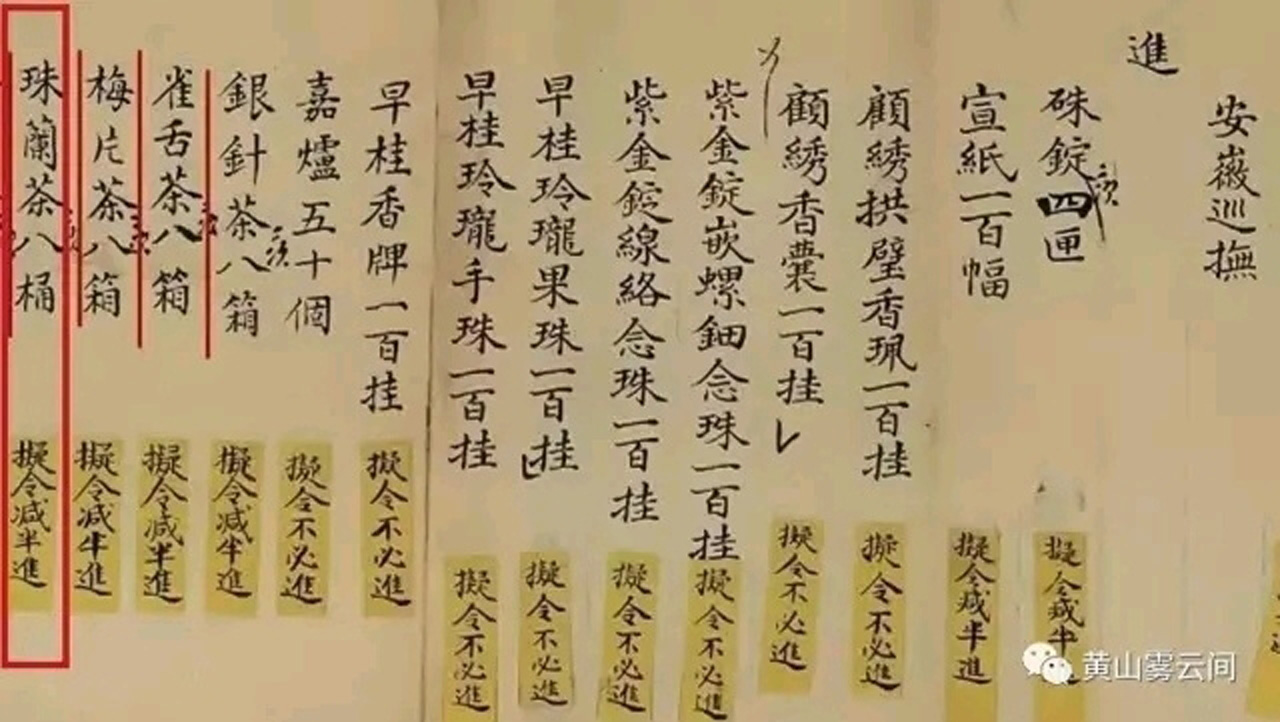 安徽巡撫
進
硃錠四匣
擬令減半進
宣紙一百幅
擬令減半進
顧綉拱璧香珮一百挂
擬令不必進
顧綉香囊一百挂
擬令不必進
紫金錠嵌螺鈿念珠一百挂
擬令不必進
紫金錠線絡念珠一百挂
擬令不必進
早桂玲瓏果珠一百挂
擬令不必進
早桂玲瓏手珠一百挂
擬令不必進
早桂香牌一百挂
擬令不必進
嘉爐五十個
擬令不必進
銀針茶八箱
擬令減半進
雀舌茶八箱
擬令減半進
梅片茶八箱
擬令減半進
珠蘭茶八桶
擬令減半進
黄山雾云间